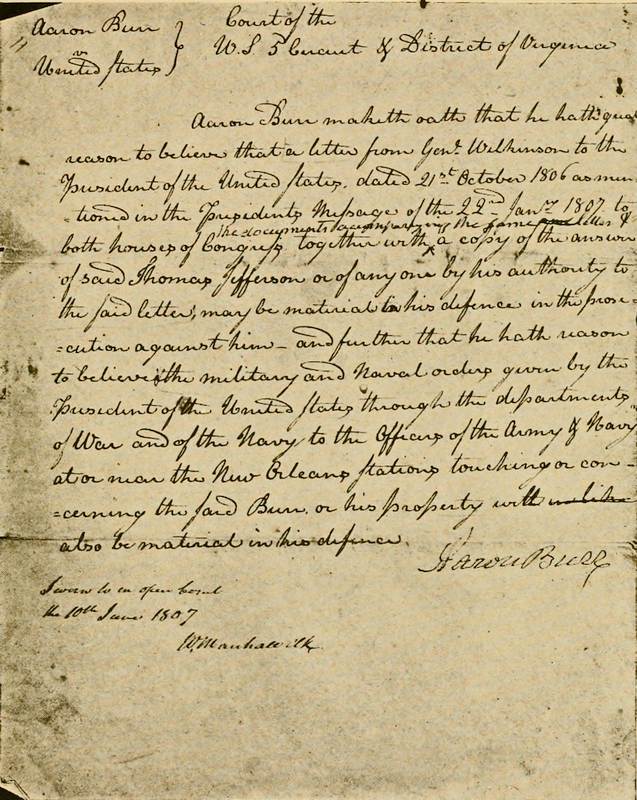 Aaron Burr
v
United States
Court of the
U.S 5 Circuit & District of Virginia
Aaron Burr maketh oath that he hath great
reason to believe that a letter from Genl. Wilkinson to the
President of the United States, dated 21st October 1806 as men
-tioned in the Presidents Message of the 22nd Jany. 1807 to
the documents accompanying the same letter &
both houses of Congress together with a copy of the answer
of said Thomas Jefferson or of any one by his authority to
the said letter, may be material in his defence in the prose-
-cution against him - and further that he hath reason
to believe the military and Naval orders given by the
President of the United States through the departments
of War and of the Navy to the Officers of the Army & Navy
at or near the New Orleans stations touching or con-
-cerning the said Burr, or his property will
also be material in his defence.
Aaron Burr
Sworn to in open Court
the 10th June 1807
W. Marshall Clk